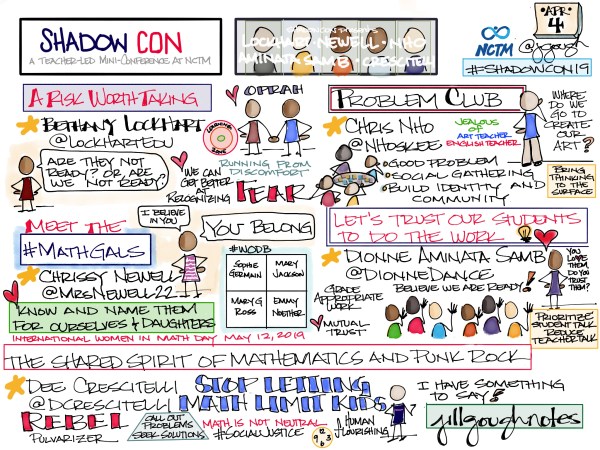 SHADOW CON
A TEACHER-LED MINI-CONFERENCE AT NCTM
LOCKHART · NEWELL · NHO
AMINATA SAMB · CRESCITELLI
NCTM
APR
4
@jgough
#SHADOWCON19
A RISK WORTH TAKING
BETHANY LOCKHART
@LOCKHARTEDU
ARE THEY NOT
READY? OR ARE
WE NOT READY?
OPRAH
RUNNING FROM
DISCOMFORT
WE CAN
GET BETTER
AT
RECOGNIZING
FEAR
PROBLEM CLUB
CHRIS NHO
@NHOSKEE
JEALOUS
OF
ART TEACHER
ENGLISH TEACHER
GOOD PROBLEM
SOCIAL GATHERING
BUILD IDENTITY AND
COMMUNITY
WHERE
DO WE
GO TO
CREATE
OUR
ART?
BRING
THINKING
TO THE
SURFACE
MEET THE
#MATHGALS
I BELIEVE
IN YOU
YOU BELONG
CHRISSY NEWELL
@MRSNEWELL22
#WODB
SOPHIE
GERMAIN
MARY
JACKSON
MARY G
ROSS
EMMY
NOETHER
KNOW AND NAME THEM
FOR OURSELVES & DAUGHTERS
INTERNATIONAL WOMEN IN MATH DAY MAY 12, 2019
LET'S TRUST OUR STUDENTS
TO DO THE WORK
DIONNE AMINATA SAMB
@DIONNEDANCE
BELIEVE WE ARE READY!
GRADE
APPROPRIATE
WORK
MUTUAL
TRUST
YOU
LOVE
THEM,
DO YOU
TRUST
THEM?
PRIORITIZE
STUDENT TALK
REDUCE
TEACHER TALK
THE SHARED SPIRIT OF MATHEMATICS AND PUNK ROCK
DEE CRESCITELLI
@DCRESCITELLI
STOP LETTING
MATH LIMIT KIDS
REBEL
PULVARIZER
CALL OUT
PROBLEMS
SEEK SOLUTIONS
MATH IS NOT NEUTRAL
#SOCIALJUSTICE
HUMAN
FLOURISHING
I HAVE SOMETHING
TO SAY!
jillgoughnotes